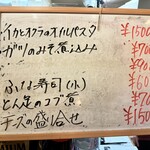 イカとオクラのオイルパスタ ¥1500
ガツのみそ煮込み ¥70
¥90
ふな寿司(小) ¥60
とん足のコブ煮 ¥70
チーズの盛合せ ¥150